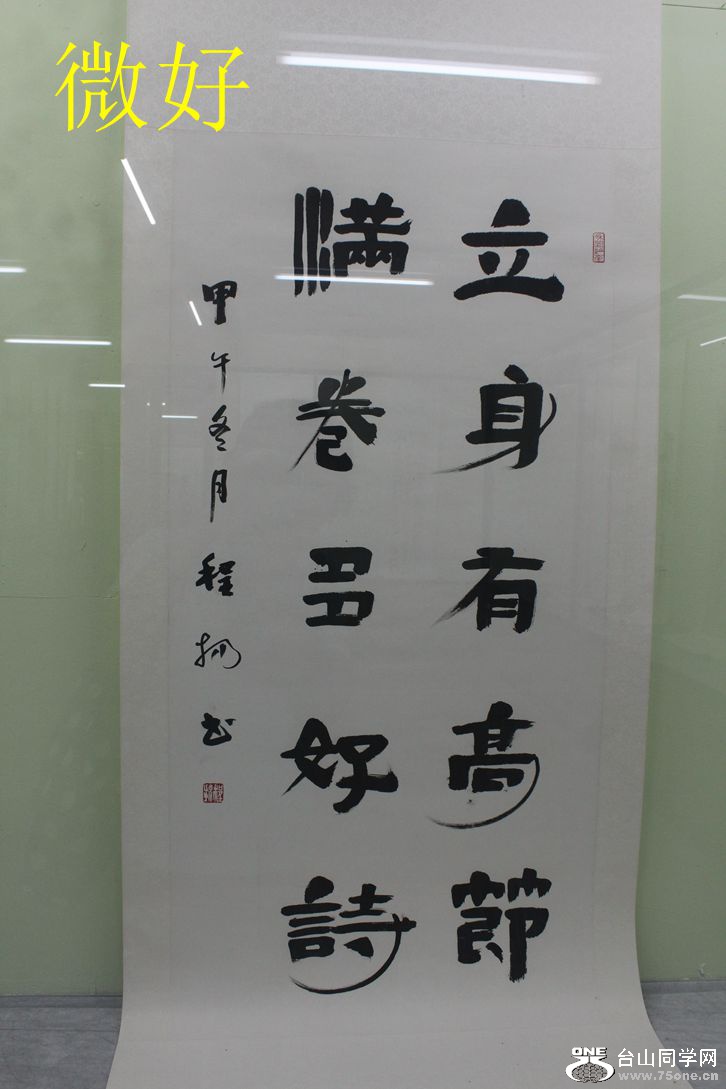 微好
立身有高節
满卷多好詩
甲午冬月程扬书
ONE
台山同学网
www.75one.cn